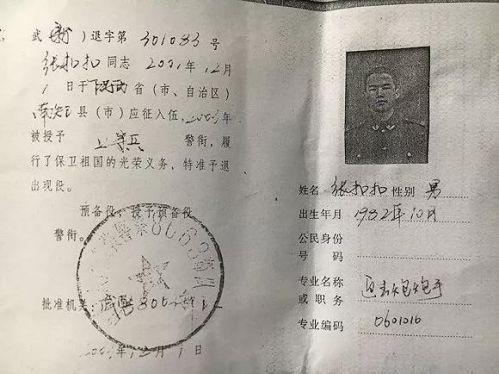 武(新)退字第301033号
张扣扣同志2001年12月
1日于陕西省(市、自治区)
南郑县(市)应征入伍,2003年
被授予上等兵警衔,履
行了保卫祖国的光荣义务,特准予退
出现役。
预备役,授予预备役
警衔。
批准机关:
2003年12月1日
姓名 张扣扣 性别 男
出生年月 1982年10月
公民身份
号码
专业名称 迫击炮炮手
或职务
专业编码 0601010